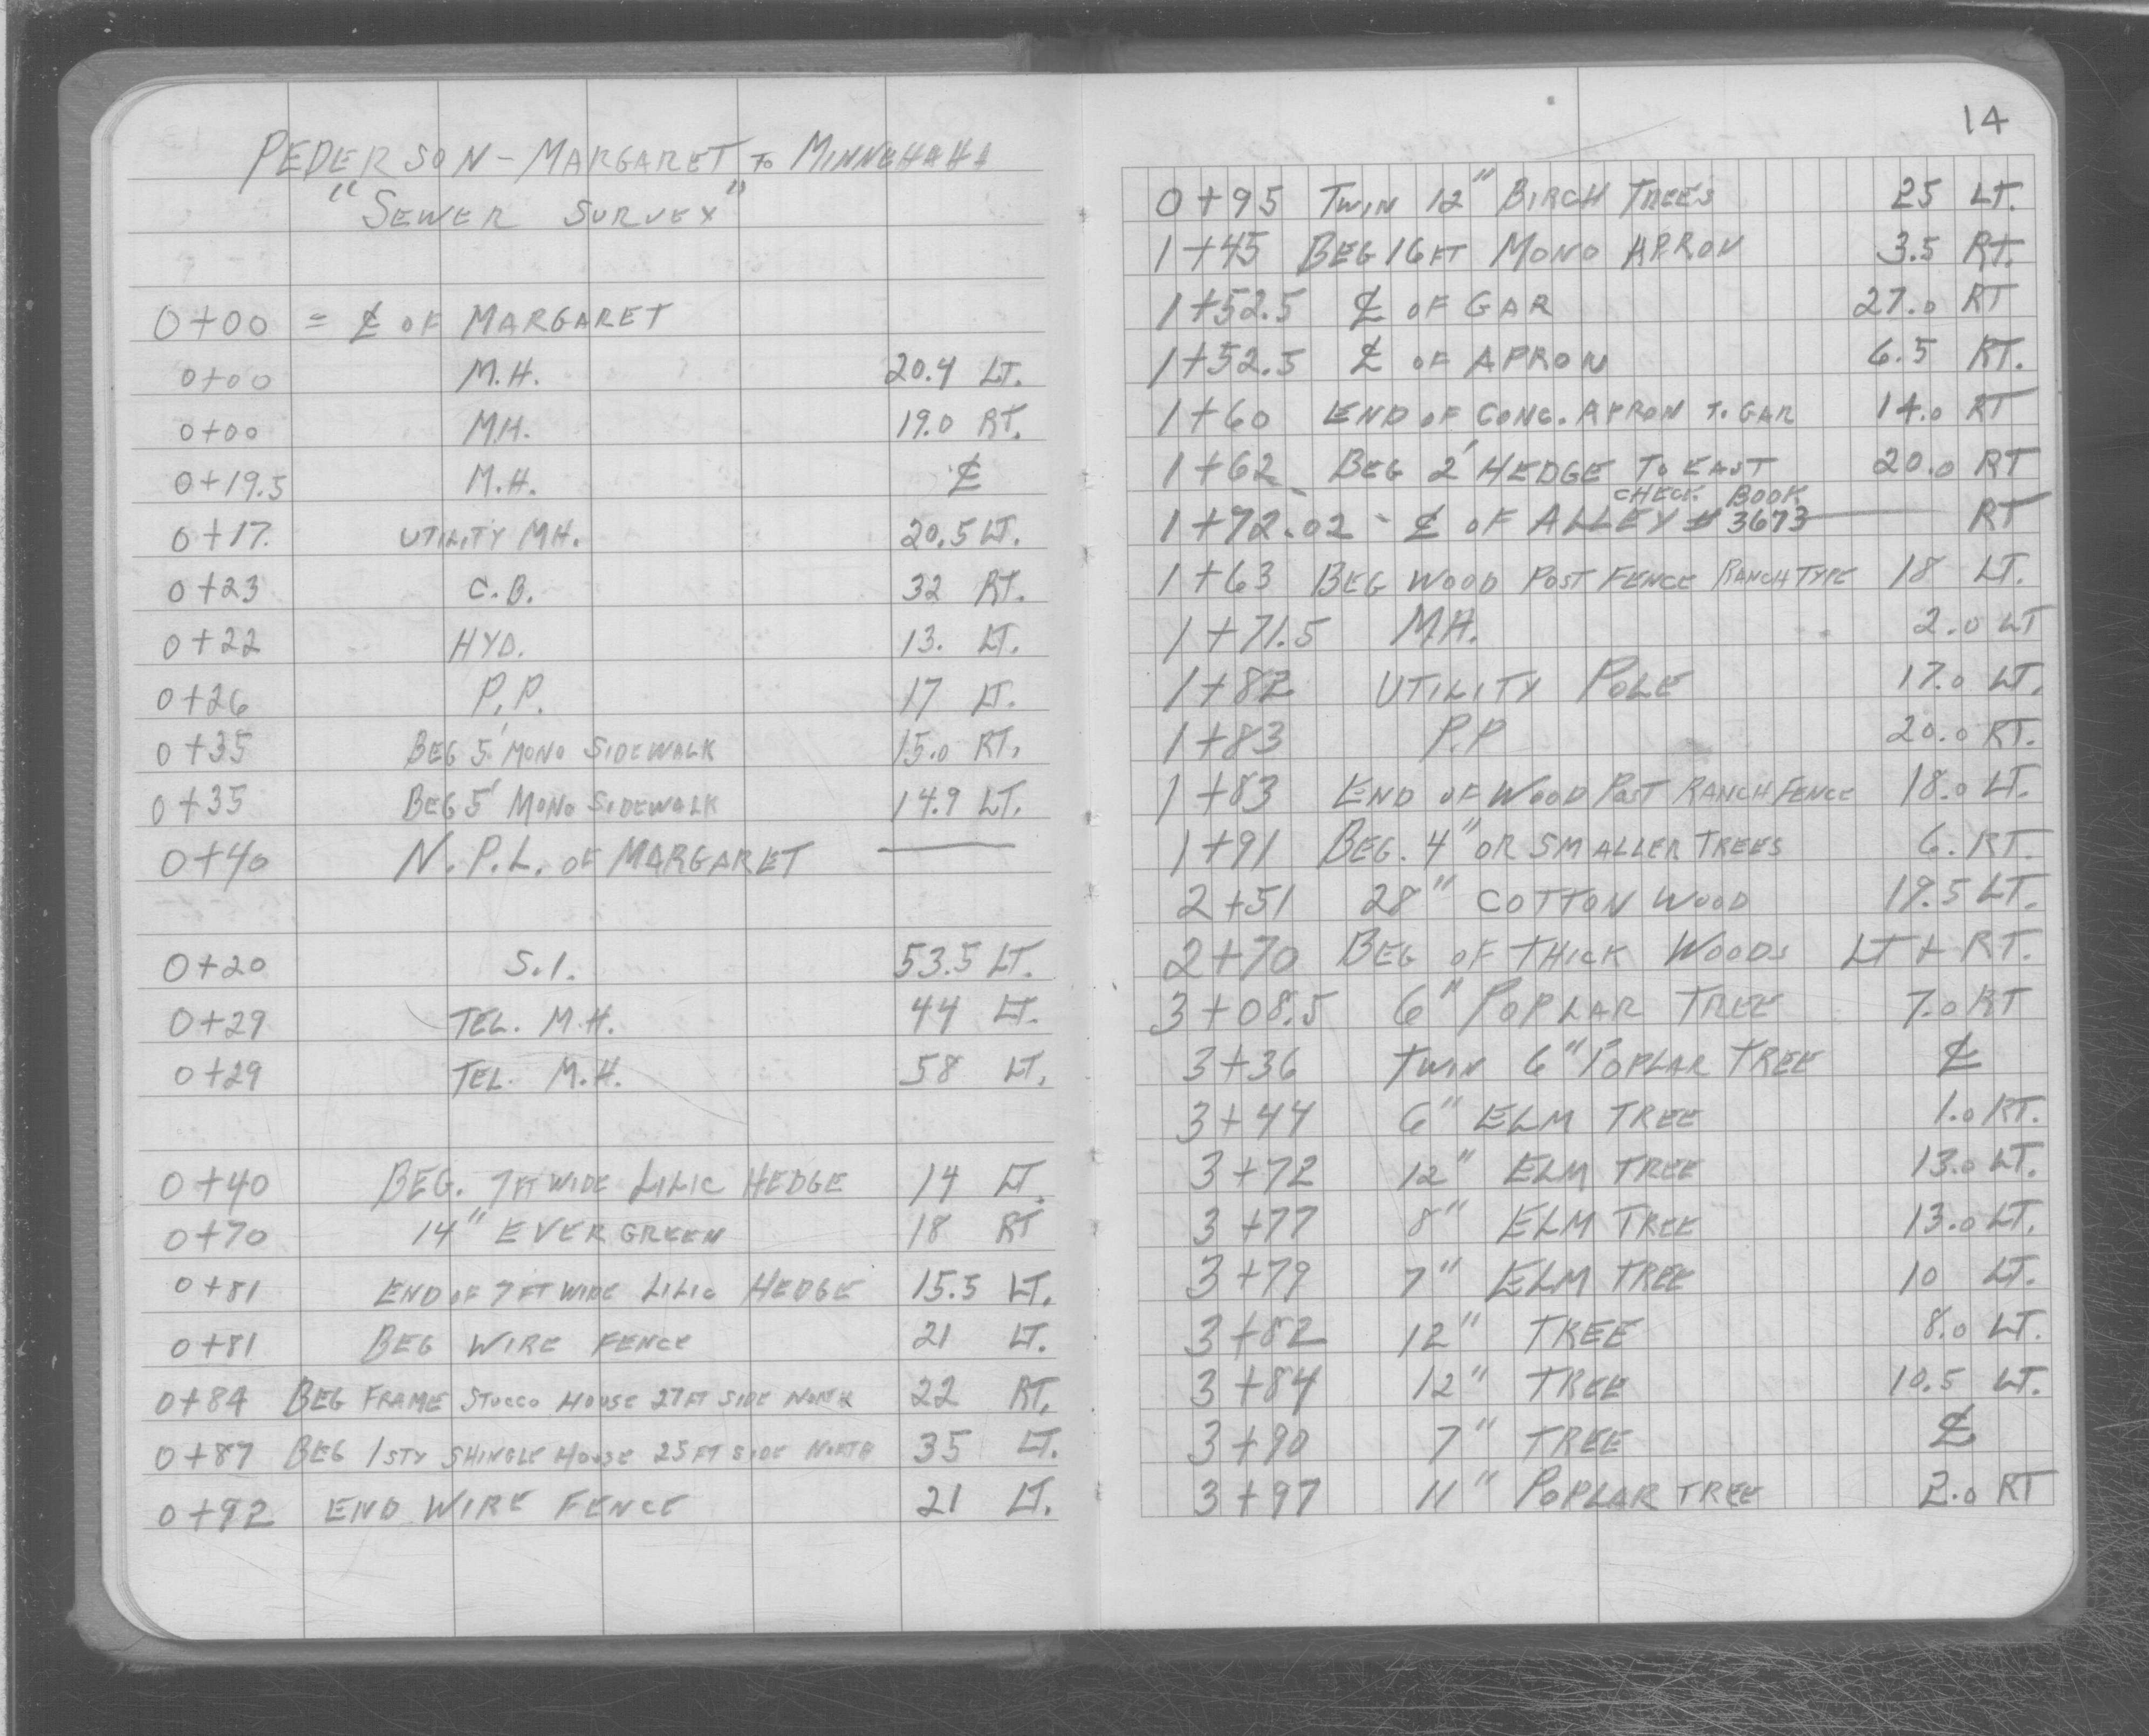 PEDERSON - MARGARET TO MINNEHAHA
"SEWER SURVEY"
0+00 = ℄ OF MARGARET
0+00 M.H. 20.4 LT.
0+00 M.H. 19.0 RT.
0+19.5 M.H. ℄
0+17. UTILITY MH. 20.5 LT.
0+23 C.B. 32 RT.
0+22 HYD. 13. LT.
0+26 P.P. 17 LT.
0+35 BEG 5' MONO SIDEWALK 15.0 RT.
0+35 BEG 5' MONO SIDEWALK 14.9 LT.
0+40 N.P.L. OF MARGARET —
0+20 S.I. 53.5 LT.
0+29 TEL. M.H. 44 LT.
0+29 TEL. M.H. 58 LT.
0+40 BEG. 7 FT WIDE LILIC HEDGE 14 LT.
0+70 14" EVERGREEN 18 RT
0+81 END OF 7 FT WIDE LILIC HEDGE 15.5 LT.
0+81 BEG WIRE FENCE 21 LT.
0+84 BEG FRAME STUCCO HOUSE 27 FT SIDE NORTH 22 RT.
0+87 BEG 1 STY SHINGLE HOUSE 25 FT SIDE NORTH 35 LT.
0+92 END WIRE FENCE 21 LT.
14
0+95 TWIN 12" BIRCH TREES 25 LT.
1+45 BEG 16 FT MONO APRON 3.5 RT.
1+52.5 ℄ OF GAR 27.0 RT
1+52.5 ℄ OF APRON 6.5 RT.
1+60 END OF CONC. APRON TO GAR 14.0 RT
1+62 BEG 2' HEDGE TO EAST 20.0 RT
CHECK BOOK
1+72.02 - ℄ OF ALLEY # 3673 — RT
1+63 BEG WOOD POST FENCE RANCH TYPE 18 LT.
1+71.5 MH. 2.0 LT
1+82 UTILITY POLE 17.0 LT.
1+83 P.P 20.0 RT.
1+83 END OF WOOD POST RANCH FENCE 18.0 LT.
1+91 BEG. 4" OR SMALLER TREES 6. RT.
2+51 28" COTTON WOOD 19.5 LT.
2+70 BEG OF THICK WOODS LT + RT.
3+08.5 6" POPLAR TREE 7.0 RT
3+36 TWIN 6" POPLAR TREE ℄
3+44 6" ELM TREE 1.0 RT.
3+72 12" ELM TREE 13.0 LT.
3+77 8" ELM TREE 13.0 LT.
3+79 7" ELM TREE 10 LT.
3+82 12" TREE 8.0 LT.
3+84 12" TREE 10.5 LT.
3+90 7" TREE ℄
3+97 11" POPLAR TREE 2.0 RT